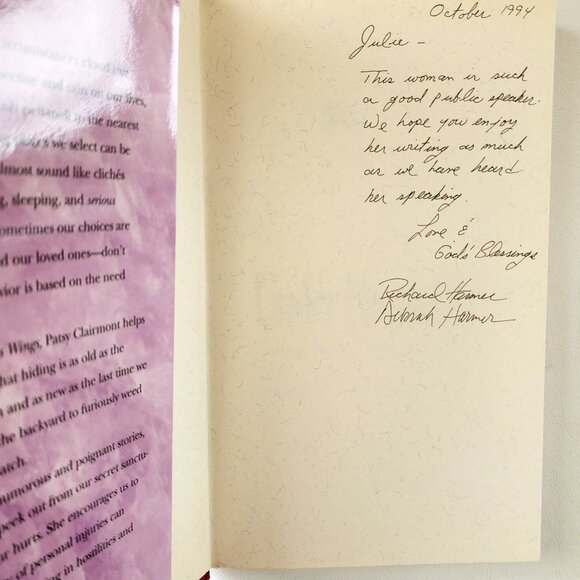 circumstances cloud our
perspective and rain on our lives,
the nearest
we select can be
almost sound like clichés
sleeping, and serious
ometimes our choices are
d our loved ones—don't
vior is based on the need
Wings, Patsy Clairmont helps
hat hiding is as old as the
and as new as the last time we
the backyard to furiously weed
atch.
umorous and poignant stories,
peek out from our secret sanctu-
ur hurts. She encourages us to
of personal injuries can
ing in hostilities and
October 1994
Julie –
This woman is such
a good public speaker.
We hope you enjoy
her writing as much
as we have heard
her speaking.
Love &
God's Blessings
Richard Harmer
Deborah Harmer